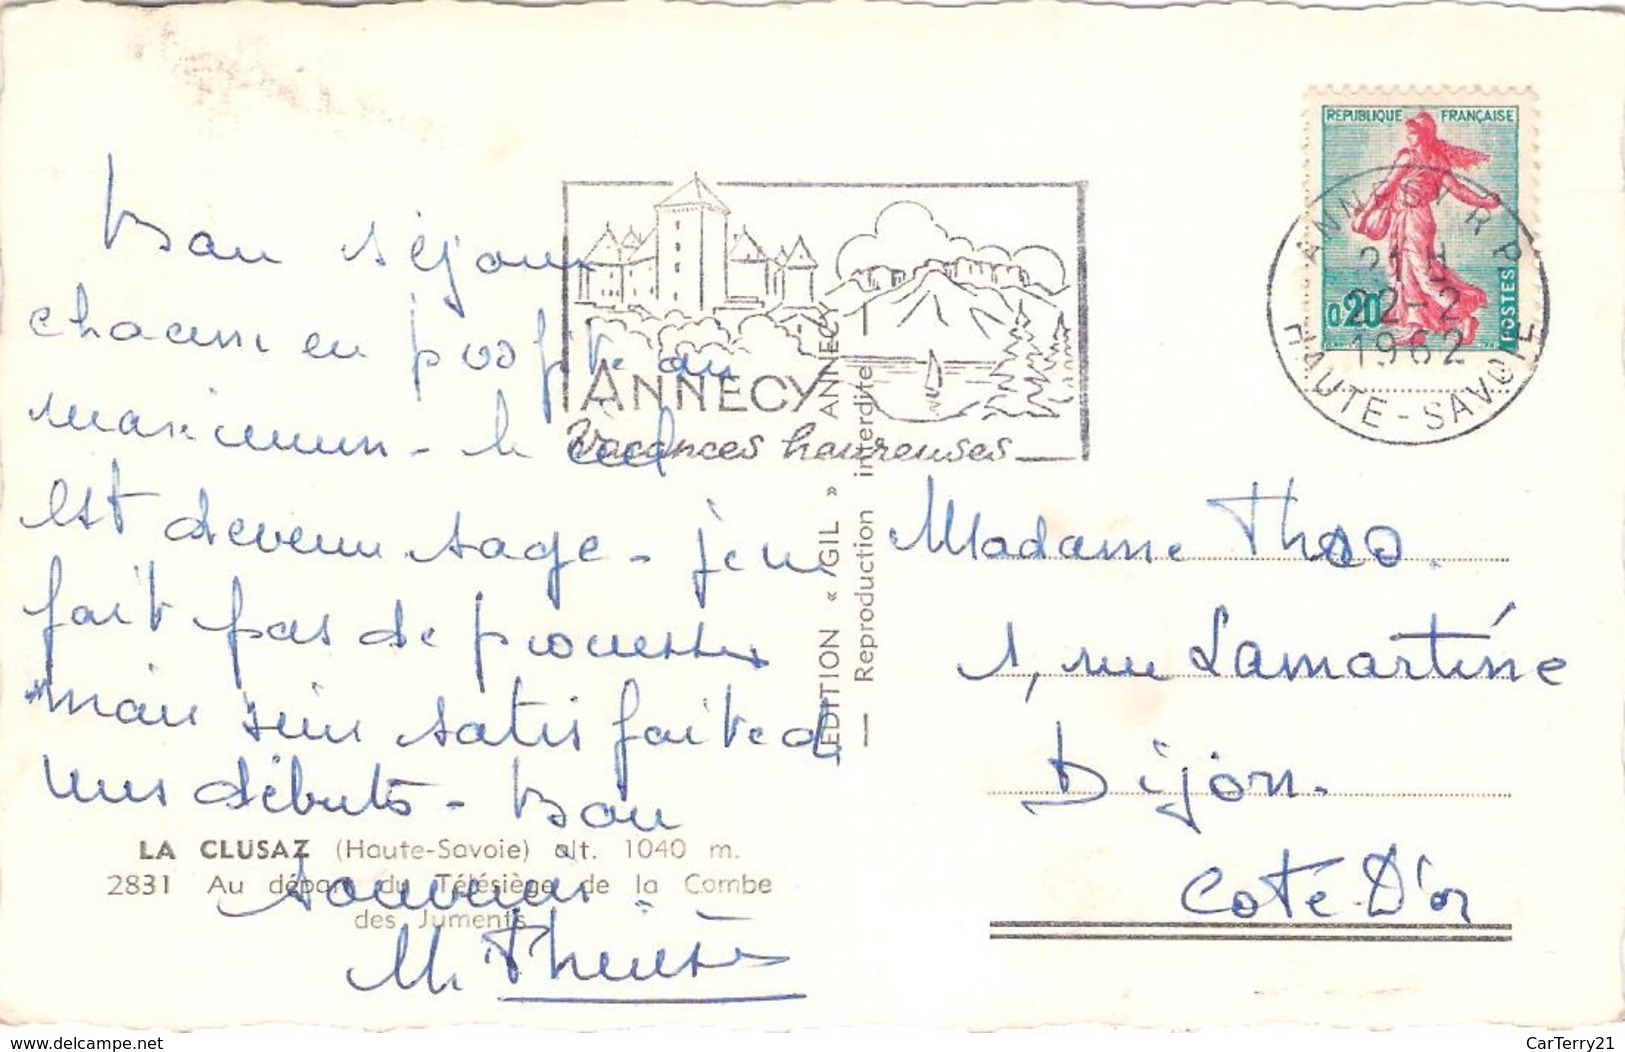 Bon séjour
chacun en profite au
maximum - le ciel
est devenu sage - je ne
fait pas de prouesses
mais suis satisfaite de
mes débuts - Bon
souvenir
M. Thérèse
LA CLUSAZ (Haute-Savoie) alt. 1040 m.
2831 Au départ du Télésiège de la Combe
des Juments
ANNECY
Vacances heureuses
EDITION « GIL » ANNECY
Reproduction interdite
REPUBLIQUE FRANÇAISE
0,20
POSTES
ANNECY R P
21 H
22-2
1962
HAUTE-SAVOIE
Madame
1, rue Lamartine
Dijon.
Cote-D'or
delcampe.net
CarTerry21